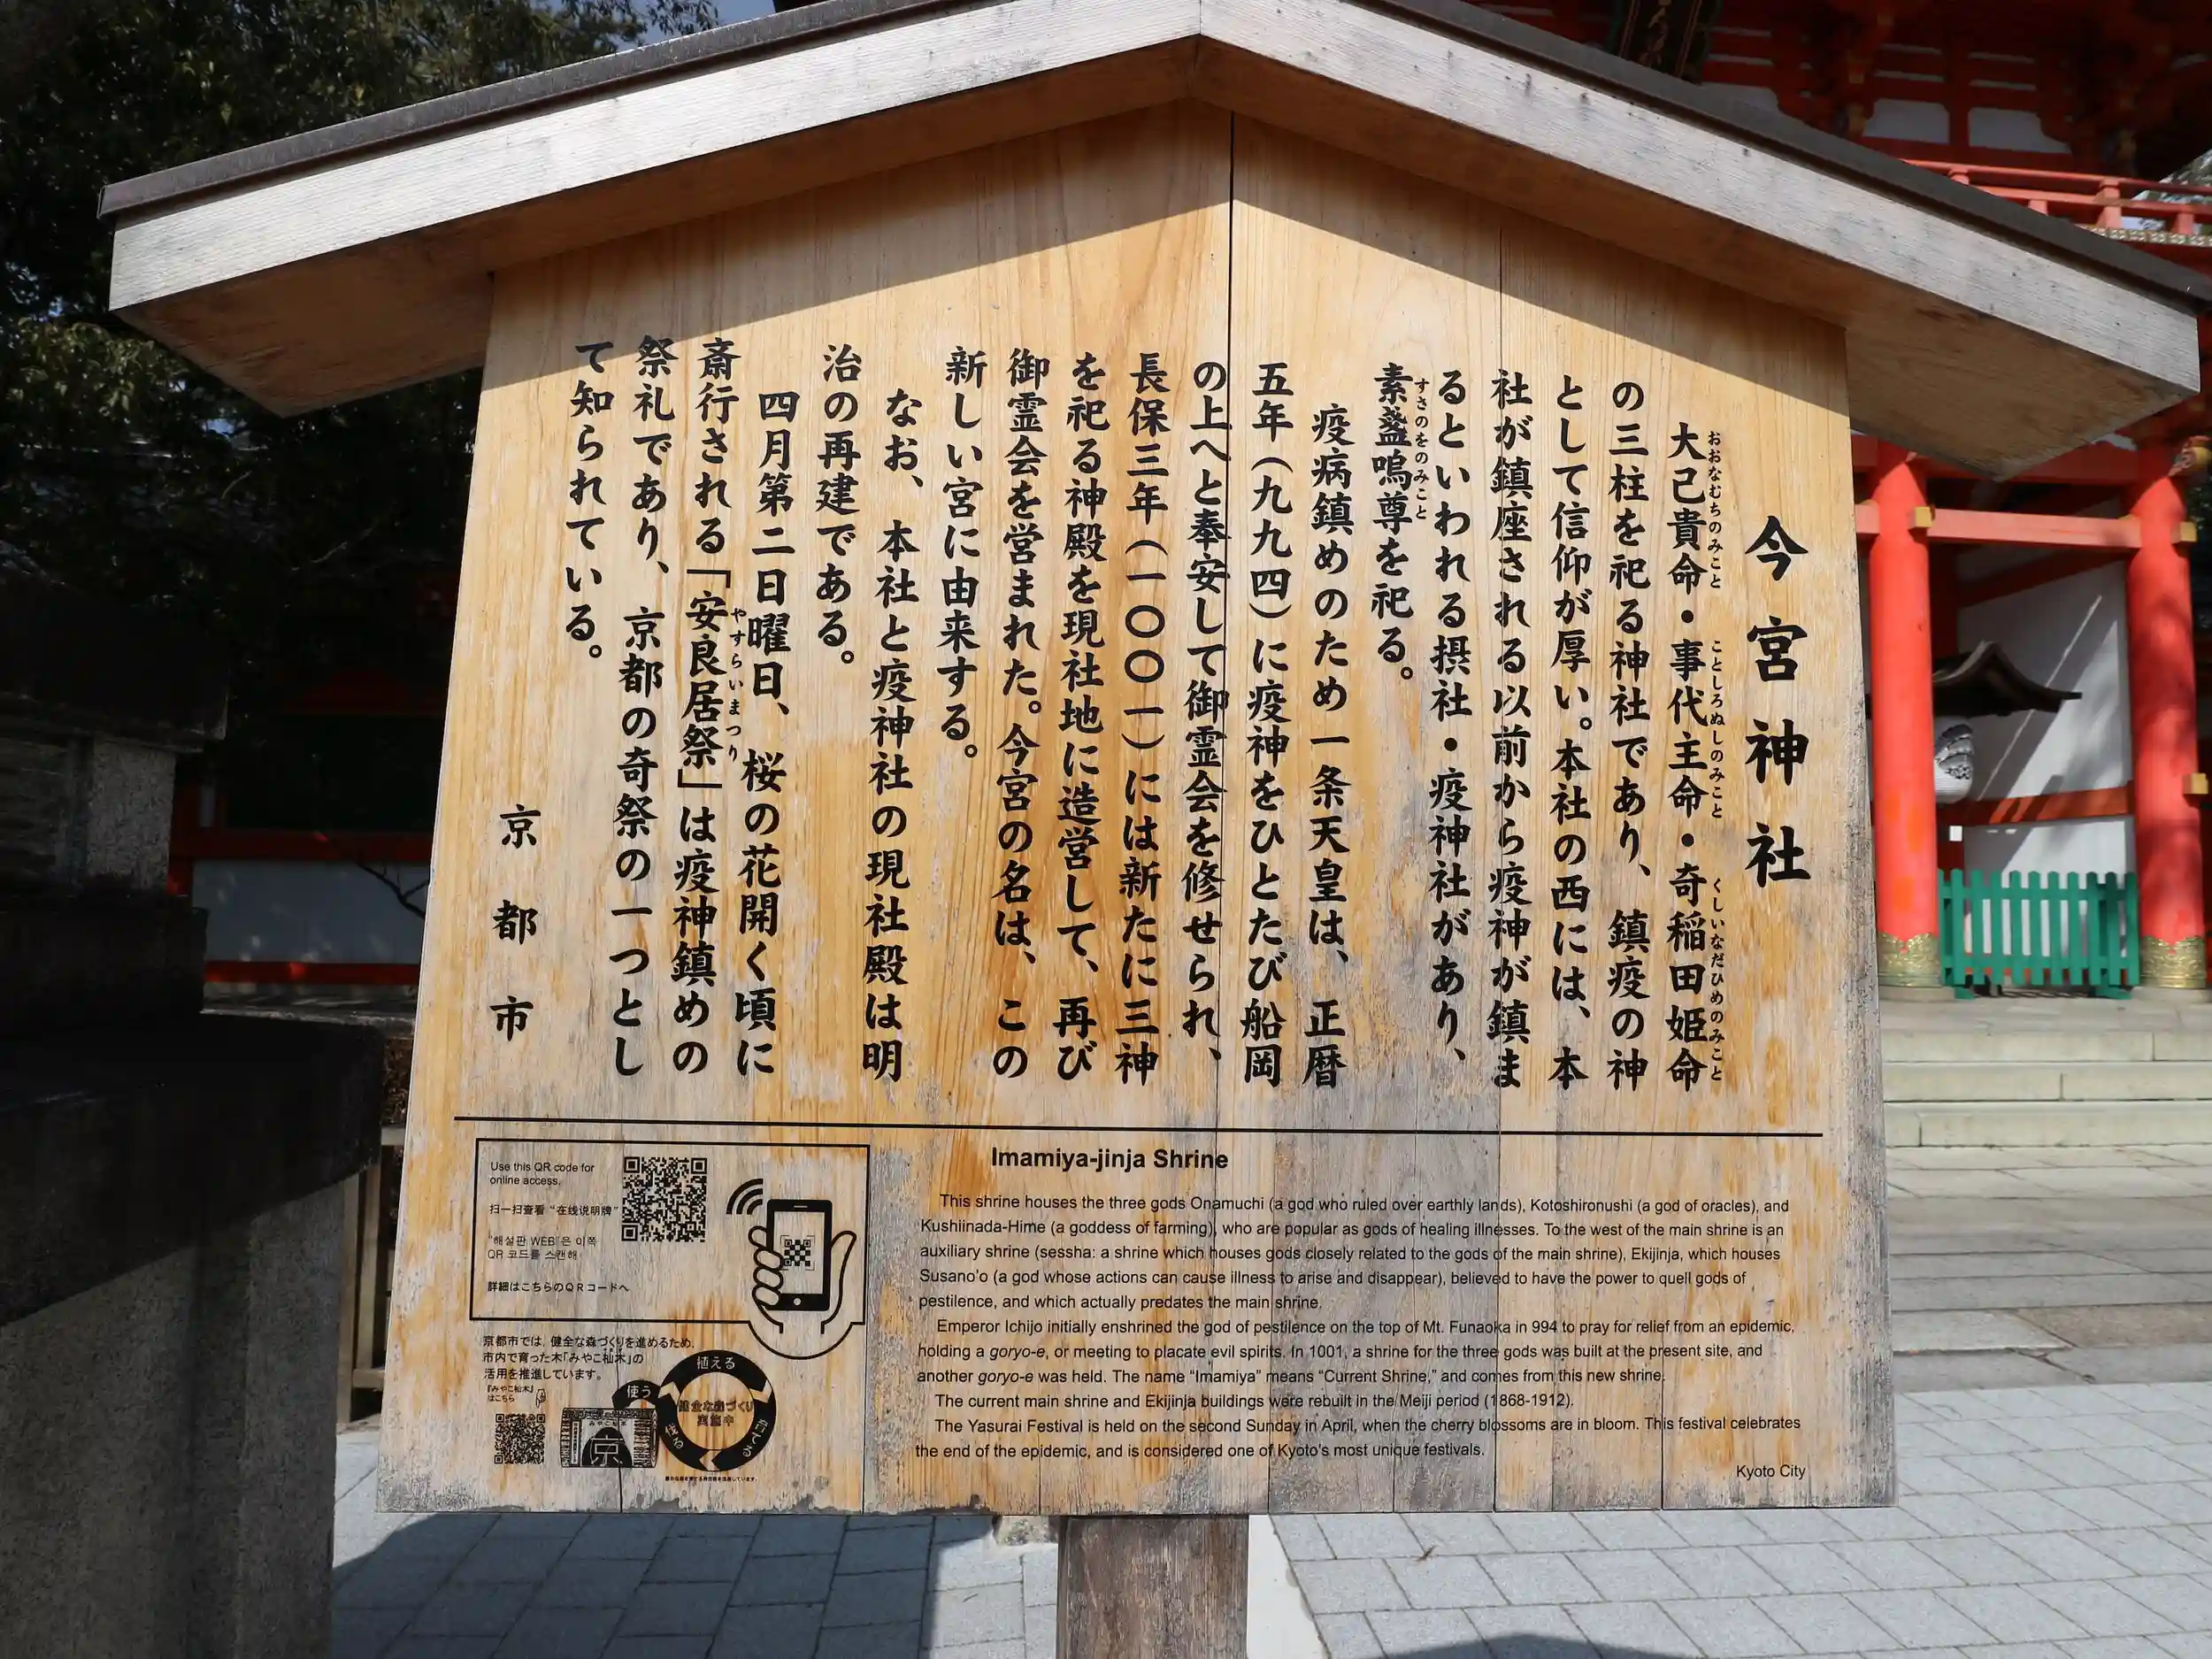 今宮神社
大己貴命・事代主命・奇稲田姫命
おおなむちのみこと ことしろぬしのみこと くしいなだひめのみこと
の三柱を祀る神社であり、鎮疫の神
として信仰が厚い。本社の西には、本
社が鎮座される以前から疫神が鎮ま
るといわれる摂社・疫神社があり、
素盞嗚尊を祀る。
すさのをのみこと
疫病鎮めのため一条天皇は、正暦
五年（九九四）に疫神をひとたび船岡
の上へと奉安して御霊会を修せられ、
長保三年（一〇〇一）には新たに三神
を祀る神殿を現社地に造営して、再び
御霊会を営まれた。今宮の名は、この
新しい宮に由来する。
なお、本社と疫神社の現社殿は明
治の再建である。
四月第二日曜日、桜の花開く頃に
斎行される「安良居祭」は疫神鎮めの
やすらいまつり
祭礼であり、京都の奇祭の一つとし
て知られている。
京都市
Use this QR code for
online access.
扫一扫查看“在线说明牌”
"해설판 WEB"은 이쪽
QR 코드를 스캔해
詳細はこちらのQRコードへ
京都市では、健全な森づくりを進めるため、
市内で育った木「みやこ杣木」の
活用を推進しています。
『みやこ杣木』
はこちら
みやこ杣木
京
使う
植える
育てる
健全な森づくり
実施中
Imamiya-jinja Shrine
This shrine houses the three gods Onamuchi (a god who ruled over earthly lands), Kotoshironushi (a god of oracles), and
Kushiinada-Hime (a goddess of farming), who are popular as gods of healing illnesses. To the west of the main shrine is an
auxiliary shrine (sessha: a shrine which houses gods closely related to the gods of the main shrine), Ekijinja, which houses
Susano'o (a god whose actions can cause illness to arise and disappear), believed to have the power to quell gods of
pestilence, and which actually predates the main shrine.
Emperor Ichijo initially enshrined the god of pestilence on the top of Mt. Funaoka in 994 to pray for relief from an epidemic,
holding a goryo-e, or meeting to placate evil spirits. In 1001, a shrine for the three gods was built at the present site, and
another goryo-e was held. The name “Imamiya” means “Current Shrine,” and comes from this new shrine.
The current main shrine and Ekijinja buildings were rebuilt in the Meiji period (1868-1912).
The Yasurai Festival is held on the second Sunday in April, when the cherry blossoms are in bloom. This festival celebrates
the end of the epidemic, and is considered one of Kyoto's most unique festivals.
Kyoto City